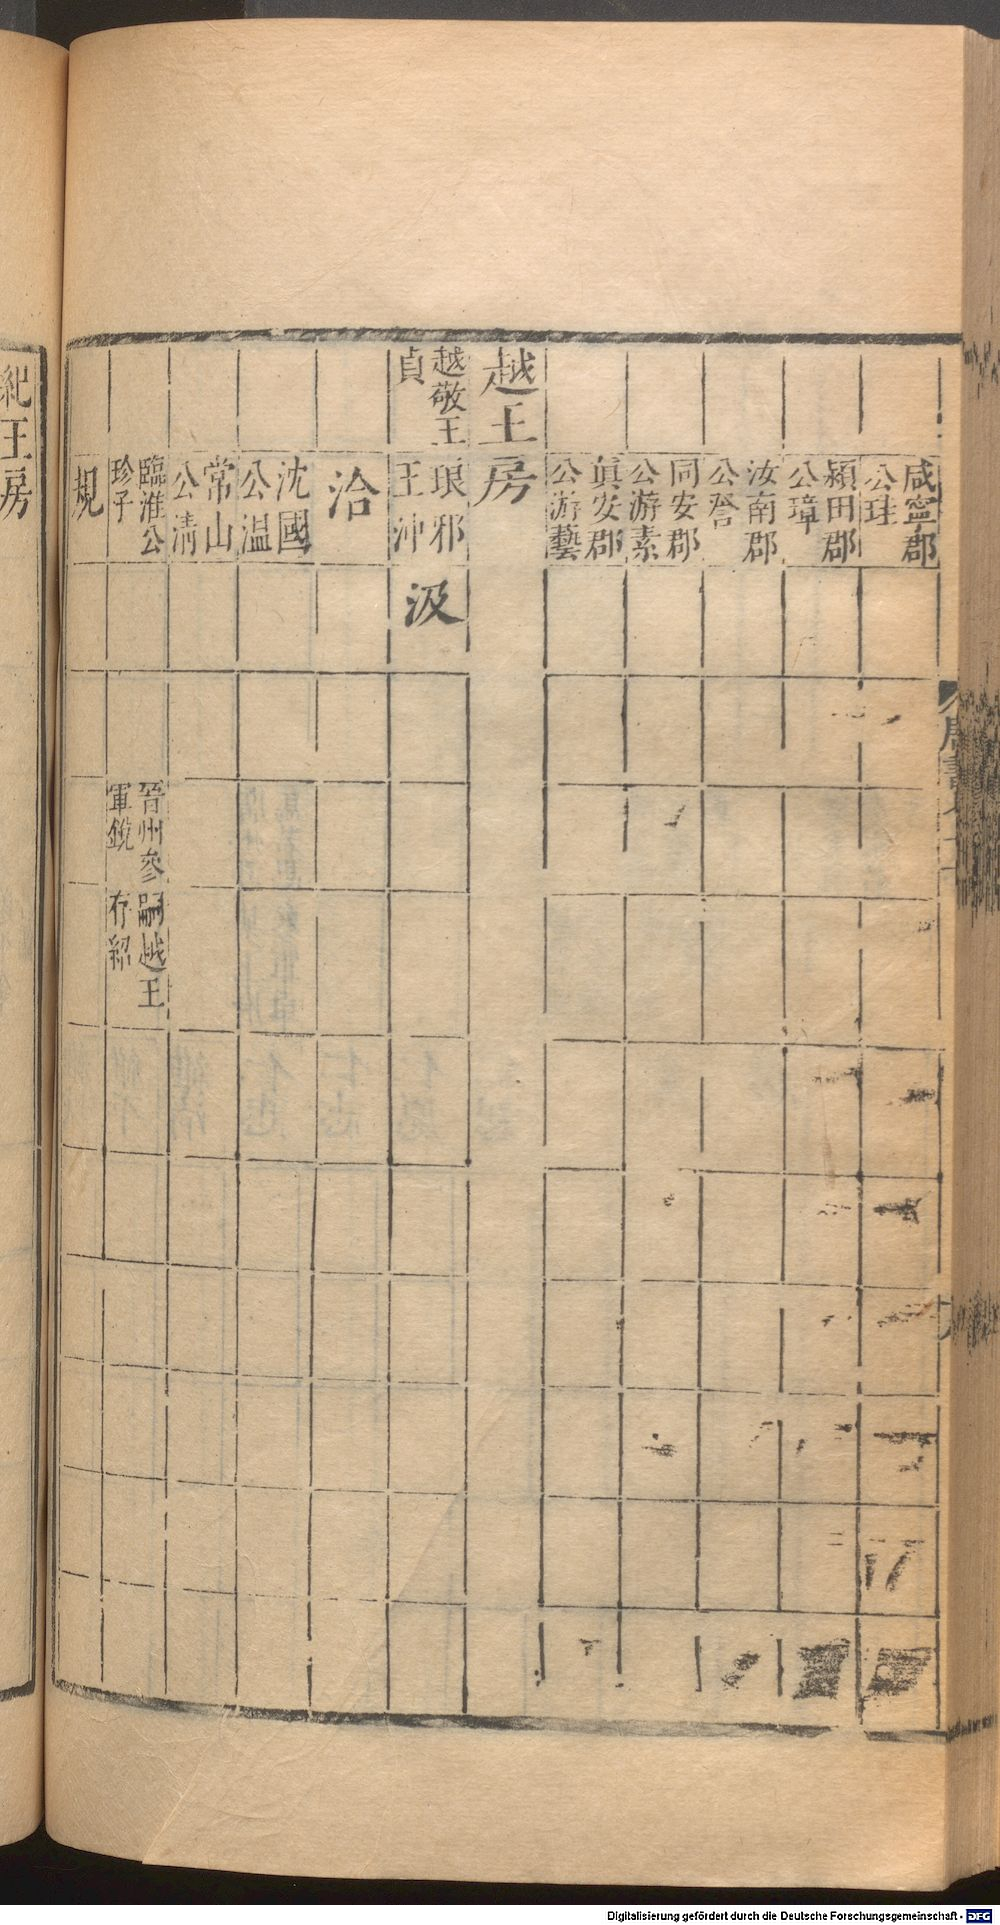 咸寧郡
公珪
潁田郡
公璋
汝南郡
公詧
同安郡
公游素
眞安郡
公游藝
越王房
越敬王
貞
琅邪
王沖
汲
洽
沈國
公温
常山
公淸
臨淮公
珍子
晉州參
軍銳
嗣越王
存紹
規
紀王房
Digitalisierung gefördert durch die Deutsche Forschungsgemeinschaft - DFG